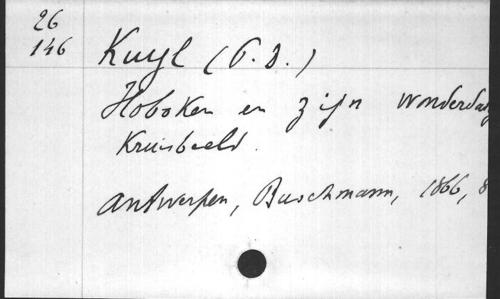 26
146
Kuyl (P. D.)
Hoboken en zijn wonderdadig
Kruisbeeld.
Antwerpen, Buschmann, 1866, 8